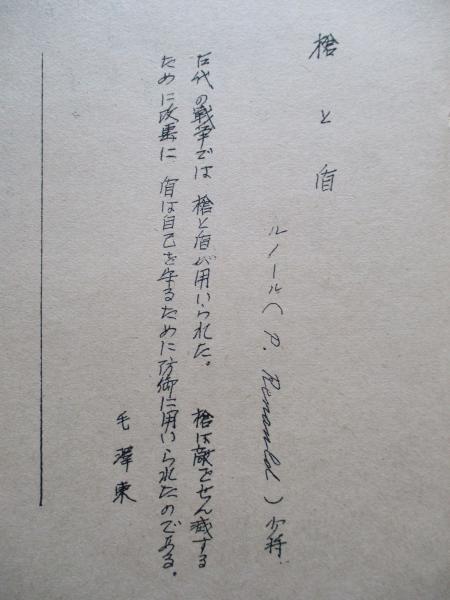 槍と盾
ルノール(P. Renauld)少将
古代の戦争では 槍と盾が用いられた。 槍は敵をせん滅する
ために攻撃に 盾は自己を守るために防御に用いられたのである。
毛澤東